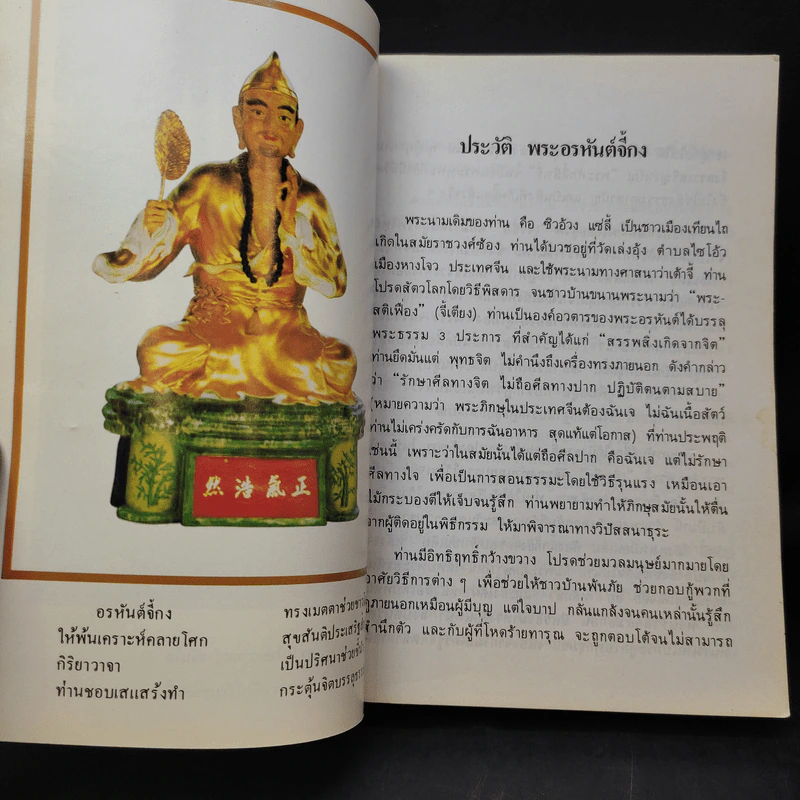 正氣浩然
อรหันต์จี้กง ทรงเมตตาช่วย
ให้พ้นเคราะห์คลายโศก สุขสันติประเสริฐ
กิริยาวาจา เป็นปริศนาช่วย
ท่านชอบเสแสร้งทำ กระตุ้นจิตบรรลุ
ประวัติ พระอรหันต์จี้กง
พระนามเดิมของท่าน คือ ซิวอ้วง แซ่ลี้ เป็นชาวเมืองเทียนไถ
เกิดในสมัยราชวงศ์ซ้อง ท่านได้บวชอยู่ที่วัดเล่งอุ้ง ตำบลไซโอ้ว
เมืองหางโจว ประเทศจีน และใช้พระนามทางศาสนาว่าเต้าจี้ ท่าน
โปรดสัตว์โลกโดยวิธีพิสดาร จนชาวบ้านขนานพระนามว่า “พระ-
สติเฟื่อง” (จี้เตียง) ท่านเป็นองค์อวตารของพระอรหันต์ได้บรรลุ
พระธรรม 3 ประการ ที่สำคัญได้แก่ “สรรพสิ่งเกิดจากจิต”
ท่านยึดมั่นแต่ พุทธจิต ไม่คำนึงถึงเครื่องทรงภายนอก ดังคำกล่าว
ว่า “รักษาศีลทางจิต ไม่ถือศีลทางปาก ปฏิบัติตนตามสบาย”
(หมายความว่า พระภิกษุในประเทศจีนต้องฉันเจ ไม่ฉันเนื้อสัตว์
ท่านไม่เคร่งครัดกับการฉันอาหาร สุดแท้แต่โอกาส) ที่ท่านประพฤติ
เช่นนี้ เพราะว่าในสมัยนั้นได้แต่ถือศีลปาก คือฉันเจ แต่ไม่รักษา
ศีลทางใจ เพื่อเป็นการสอนธรรมะโดยใช้วิธีรุนแรง เหมือนเอา
ไม้กระบองตีให้เจ็บจนรู้สึก ท่านพยายามทำให้ภิกษุสมัยนั้นให้ตื่น
จากผู้ติดอยู่ในพิธีกรรม ให้มาพิจารณาทางวิปัสสนาธุระ
ท่านมีอิทธิฤทธิ์กว้างขวาง โปรดช่วยมวลมนุษย์มากมายโดย
อาศัยวิธีการต่าง ๆ เพื่อช่วยให้ชาวบ้านพ้นภัย ช่วยกอบกู้พวกที่
ดูภายนอกเหมือนผู้มีบุญ แต่ใจบาป กลั่นแกล้งจนคนเหล่านั้นรู้สึก
สำนึกตัว และกับผู้ที่โหดร้ายทารุณ จะถูกตอบโต้จนไม่สามารถ